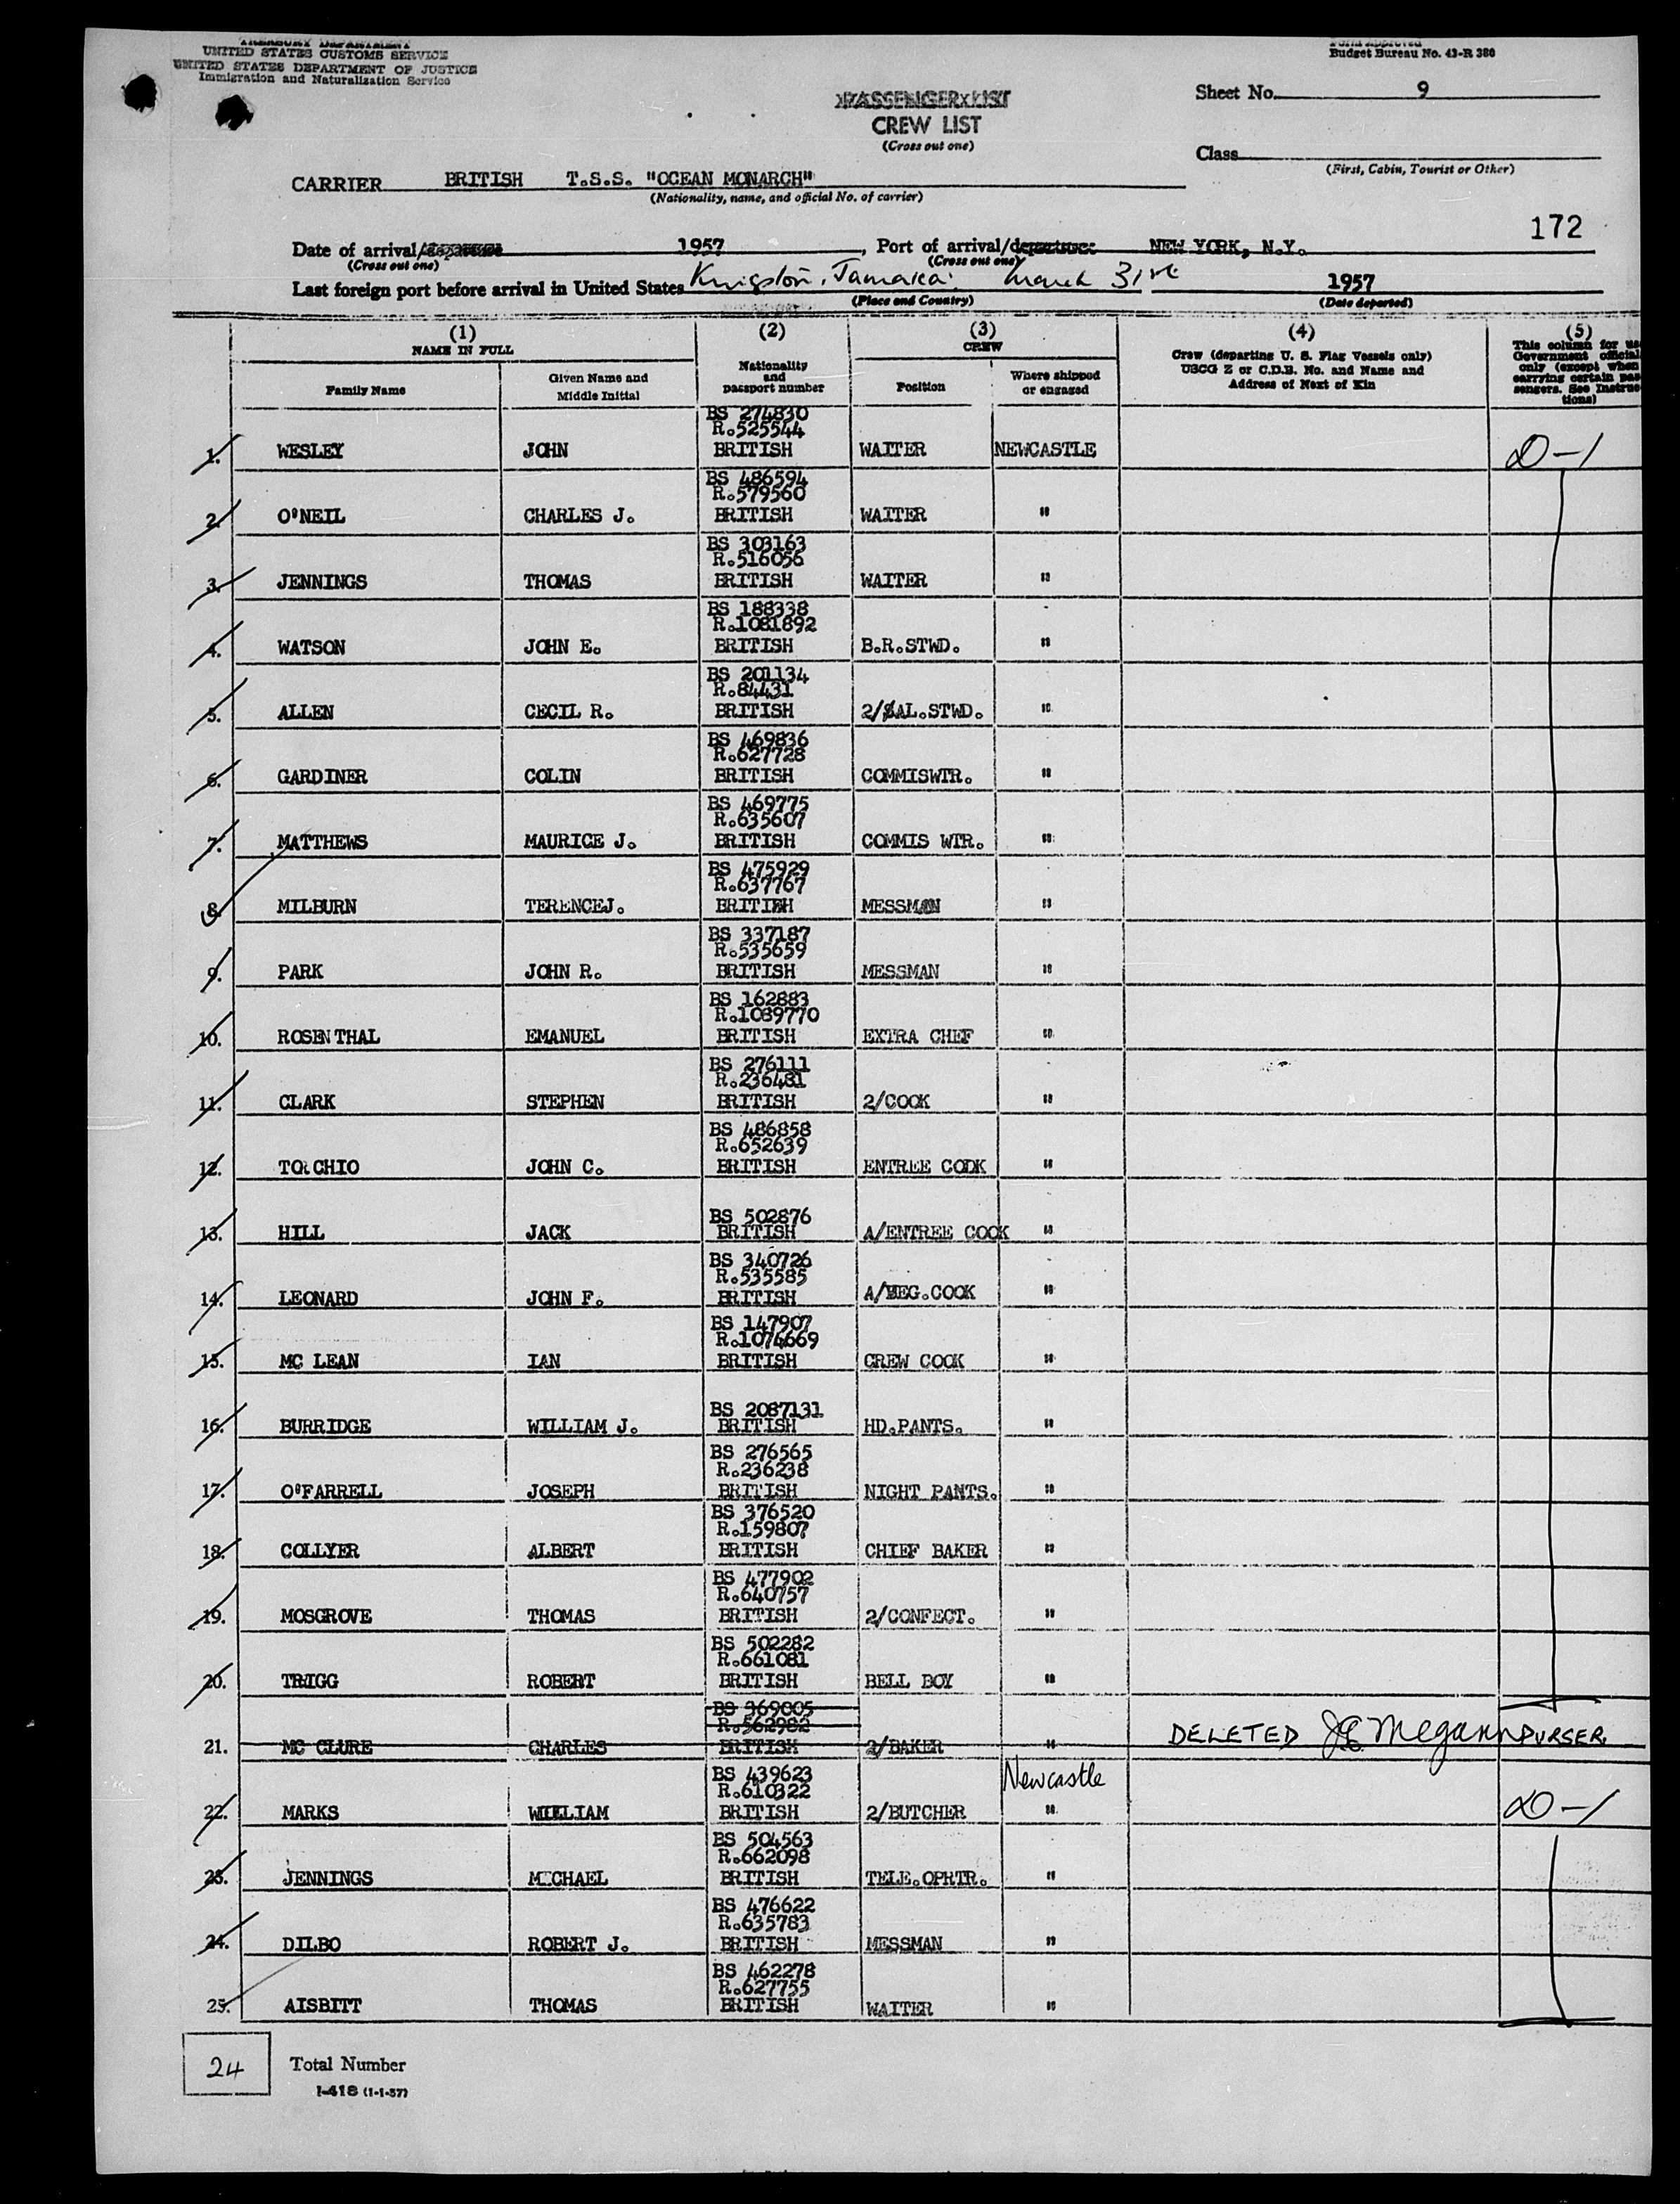 TREASURY DEPARTMENT
UNITED STATES CUSTOMS SERVICE
UNITED STATES DEPARTMENT OF JUSTICE
Immigration and Naturalization Service
Form Approved
Budget Bureau No. 43-R 380
PASSENGER LIST
CREW LIST
(Cross out one)
Sheet No. 9
Class
(First, Cabin, Tourist or Other)
CARRIER BRITISH T.S.S. "OCEAN MONARCH"
(Nationality, name, and official No. of carrier)
172
Date of arrival/departure 1957, Port of arrival/departure NEW YORK, N.Y.
(Cross out one) (Cross out one)
Last foreign port before arrival in United States Kingston, Jamaica. March 31st 1957
(Place and Country) (Date departed)
(1) NAME IN FULL
Family Name
Given Name and Middle Initial
(2) Nationality and passport number
(3) CREW
Position
Where shipped or engaged
(4) Crew (departing U. S. Flag Vessels only) USCG Z or C.D.B. No. and Name and Address of Next of Kin
(5) This column for use Government official only (except when carrying certain pas sengers. See Instruc tions)
BS 274830
R.525544
1. WESLEY JOHN BRITISH WAITER NEWCASTLE D-1
BS 486594
R.579560
2. O'NEIL CHARLES J. BRITISH WAITER "
BS 303163
R.516056
3. JENNINGS THOMAS BRITISH WAITER "
BS 188338
R.1081892
4. WATSON JOHN E. BRITISH B.R.STWD. "
BS 201134
R.84431
5. ALLEN CECIL R. BRITISH 2/SAL.STWD. "
BS 469836
R.627728
6. GARDINER COLIN BRITISH COMMISWTR. "
BS 469775
R.635607
7. MATTHEWS MAURICE J. BRITISH COMMIS WTR. "
BS 475929
R.637767
8. MILBURN TERENCEJ. BRITISH MESSMAN "
BS 337187
R.535659
9. PARK JOHN R. BRITISH MESSMAN "
BS 162883
R.1089770
10. ROSENTHAL EMANUEL BRITISH EXTRA CHEF "
BS 276111
R.236481
11. CLARK STEPHEN BRITISH 2/COOK "
BS 486858
R.652639
12. TORCHIO JOHN C. BRITISH ENTREE COOK "
BS 502876
13. HILL JACK BRITISH A/ENTREE COOK "
BS 340726
R.535585
14. LEONARD JOHN F. BRITISH A/VEG.COOK "
BS 147907
R.1074669
15. MC LEAN IAN BRITISH CREW COOK "
BS 2087131
16. BURRIDGE WILLIAM J. BRITISH HD.PANTS. "
BS 276565
R.236238
17. O'FARRELL JOSEPH BRITISH NIGHT PANTS. "
BS 376520
R.159807
18. COLLYER ALBERT BRITISH CHIEF BAKER "
BS 477902
R.640757
19. MOSGROVE THOMAS BRITISH 2/CONFECT. "
BS 502282
R.661081
20. TRIGG ROBERT BRITISH BELL BOY "
BS 369005
R.562982
21. MC CLURE CHARLES BRITISH 2/BAKER " DELETED JE Megann PURSER
BS 439623 Newcastle
R.610322
22. MARKS WILLIAM BRITISH 2/BUTCHER " D-1
BS 504563
R.662098
23. JENNINGS MICHAEL BRITISH TELE.OPRTR. "
BS 476622
R.635783
24. DILBO ROBERT J. BRITISH MESSMAN "
BS 462278
R.627755
25. AISBITT THOMAS BRITISH WAITER "
24 Total Number
I-418 (1-1-57)